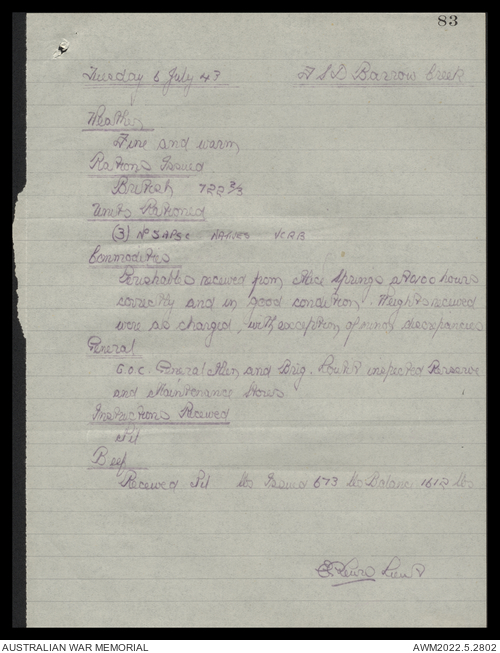 83
Tuesday 6 July 43 F S D Barrow Creek
Weather
Fine and warm
Rations Issued
British 722 2/3
Units Rationed
(3) No 5 APSC NATIVES VCRB
Commodities
Perishables received from Alice Springs at 1000 hours
correctly and in good condition. Weights received
were as charged, with exception of minor discrepancies
General
G.O.C. General Allen and Brig. inspected Reserve
and Maintenance Stores
Instructions Received
Nil
Beef
Received Nil lbs Issued 673 lbs Balance 1612 lbs
Lieut
AUSTRALIAN WAR MEMORIAL AWM2022.5.2802